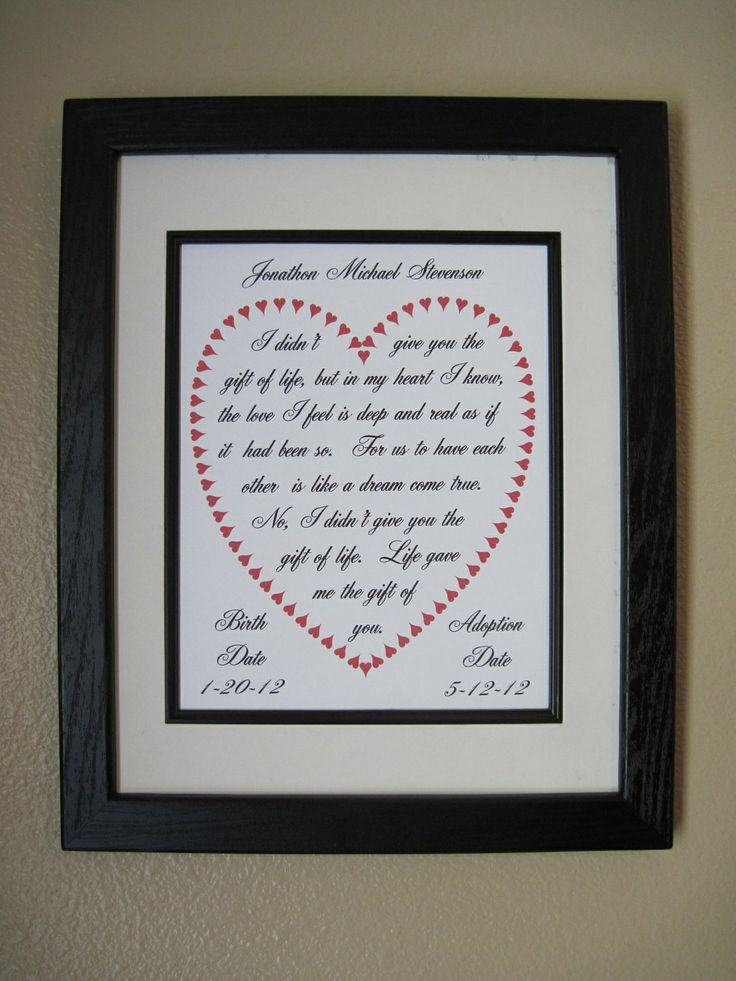 Jonathon Michael Stevenson
I didn't give you the
gift of life, but in my heart I know,
the love I feel is deep and real as if
it had been so. For us to have each
other is like a dream come true.
No, I didn't give you the
gift of life. Life gave
me the gift of
you.
Birth
Date
1-20-12
Adoption
Date
5-12-12